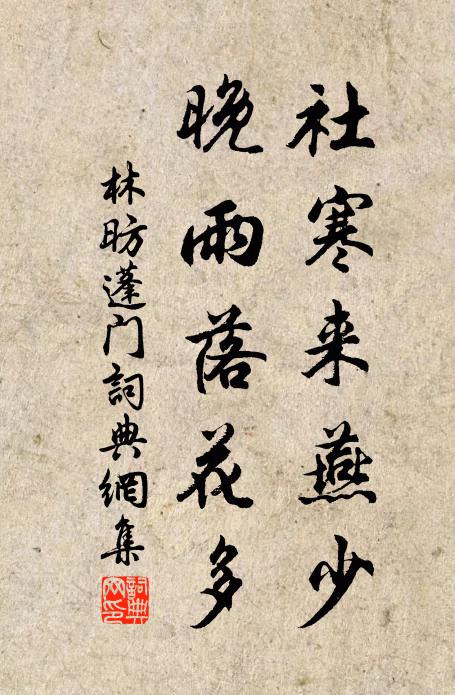 社寒来燕少
晚雨落花多
林昉蓬门詞典網集
詞典網印